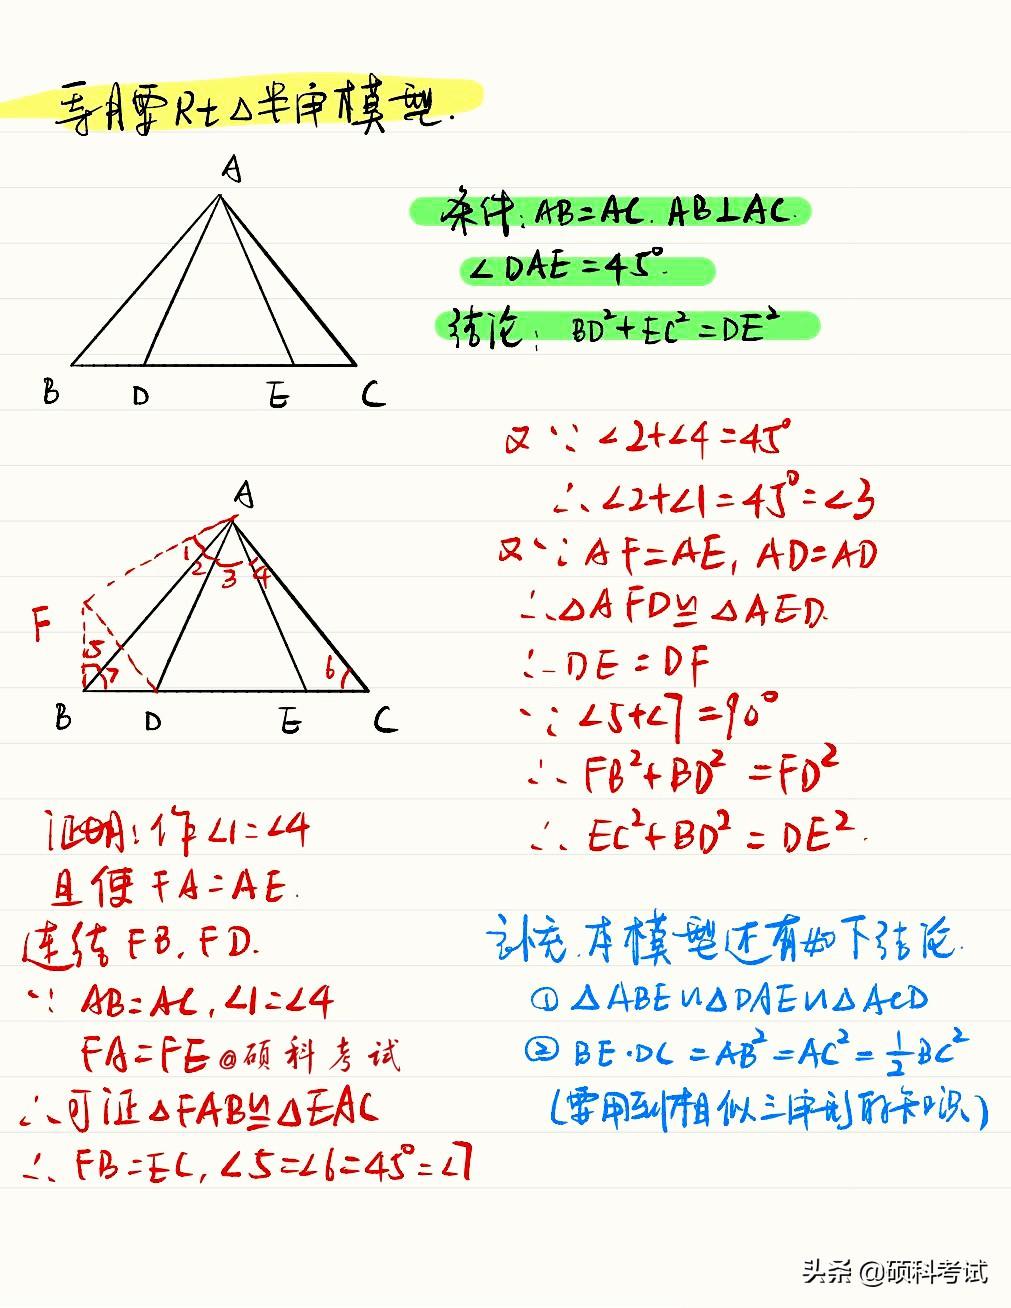 等腰Rt△半角模型.
A
条件: AB=AC. AB⊥AC.
∠DAE=45°.
结论: BD²+EC²=DE²
B D E C
又∵ ∠2+∠4=45°
∴∠2+∠1=45°=∠3
又∵ AF=AE, AD=AD
∴△AFD≌△AED.
∴DE=DF
∵ ∠5+∠7=90°
∴ FB²+BD²=FD²
∴ EC²+BD²=DE².
A
1 2 3 4
F
5 7 6
B D E C
证明:作∠1=∠4
且使FA=AE.
连结FB,FD.
∵ AB=AC,∠1=∠4
FA=FE@硕科考试
∴可证△FAB≌△EAC
∴ FB=EC,∠5=∠6=45°=∠7
补充.本模型还有如下结论.
① △ABE∽△DAE∽△ACD
② BE·DC=AB²=AC²=½BC²
(要用到相似三角形的知识)
头条@硕科考试